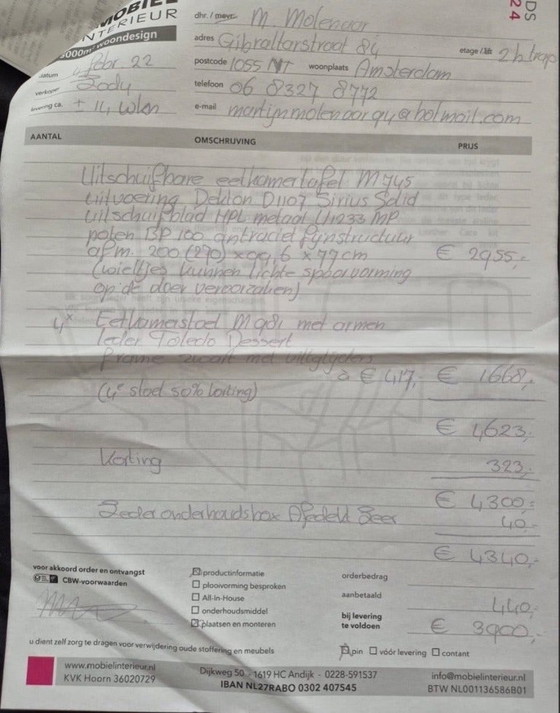 MOBIEL
INTERIEUR
3000m² woondesign
DS
24
dhr. / mevr. M. Molenaar
adres Gibraltarstraat 84 etage / lift 2h trap
postcode 1055 NT woonplaats Amsterdam
datum febr. 22
telefoon 06 8327 8772
verkoper Jody
levering ca. ± 14 wkn
e-mail
AANTAL OMSCHRIJVING PRIJS
Uitschuifbare eetkamertafel M745
uitvoering Dekton D1107 Sirius Solid
uitschuifblad HPL metaal U1233 MP
poten BP100 antraciet fijnstructuur
afm. 200 (270) x 99,6 x 77 cm € 2955,-
(wieltjes kunnen lichte spoorvorming
op de vloer veroorzaken)
4x Eetkamerstoel M981 met armen
leder Toledo Dessert
Frame zwart met viltglijders
à € 417,- € 1668,-
(4e stoel 50% korting)
€ 4623,-
Korting 323,-
€ 4300,-
Leder onderhoudsbox 40,-
€ 4340,-
voor akkoord order en ontvangst
CBW-voorwaarden
productinformatie
plooivorming besproken
All-in-House
onderhoudsmiddel
plaatsen en monteren
orderbedrag
aanbetaald 440,-
bij levering
te voldoen € 3900,-
u dient zelf zorg te dragen voor verwijdering oude stoffering en meubels
pin vóór levering contant
www.mobielinterieur.nl Dijkweg 50 - 1619 HC Andijk - 0228-591537 info@mobielinterieur.nl
KVK Hoorn 36020729 IBAN NL27RABO 0302 407545 BTW NL001136586B01